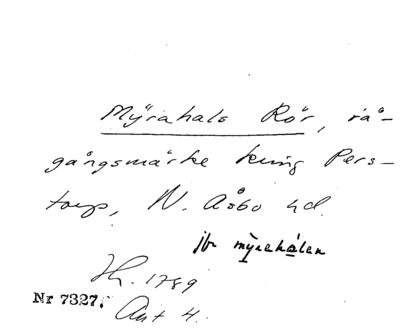 Myrahals Rör, rå-
gångsmärke kring Pers-
torp, N. Åsbo hd.
jfr myrehålen
Jh. 1789
Nr 7327.
Akt 4.